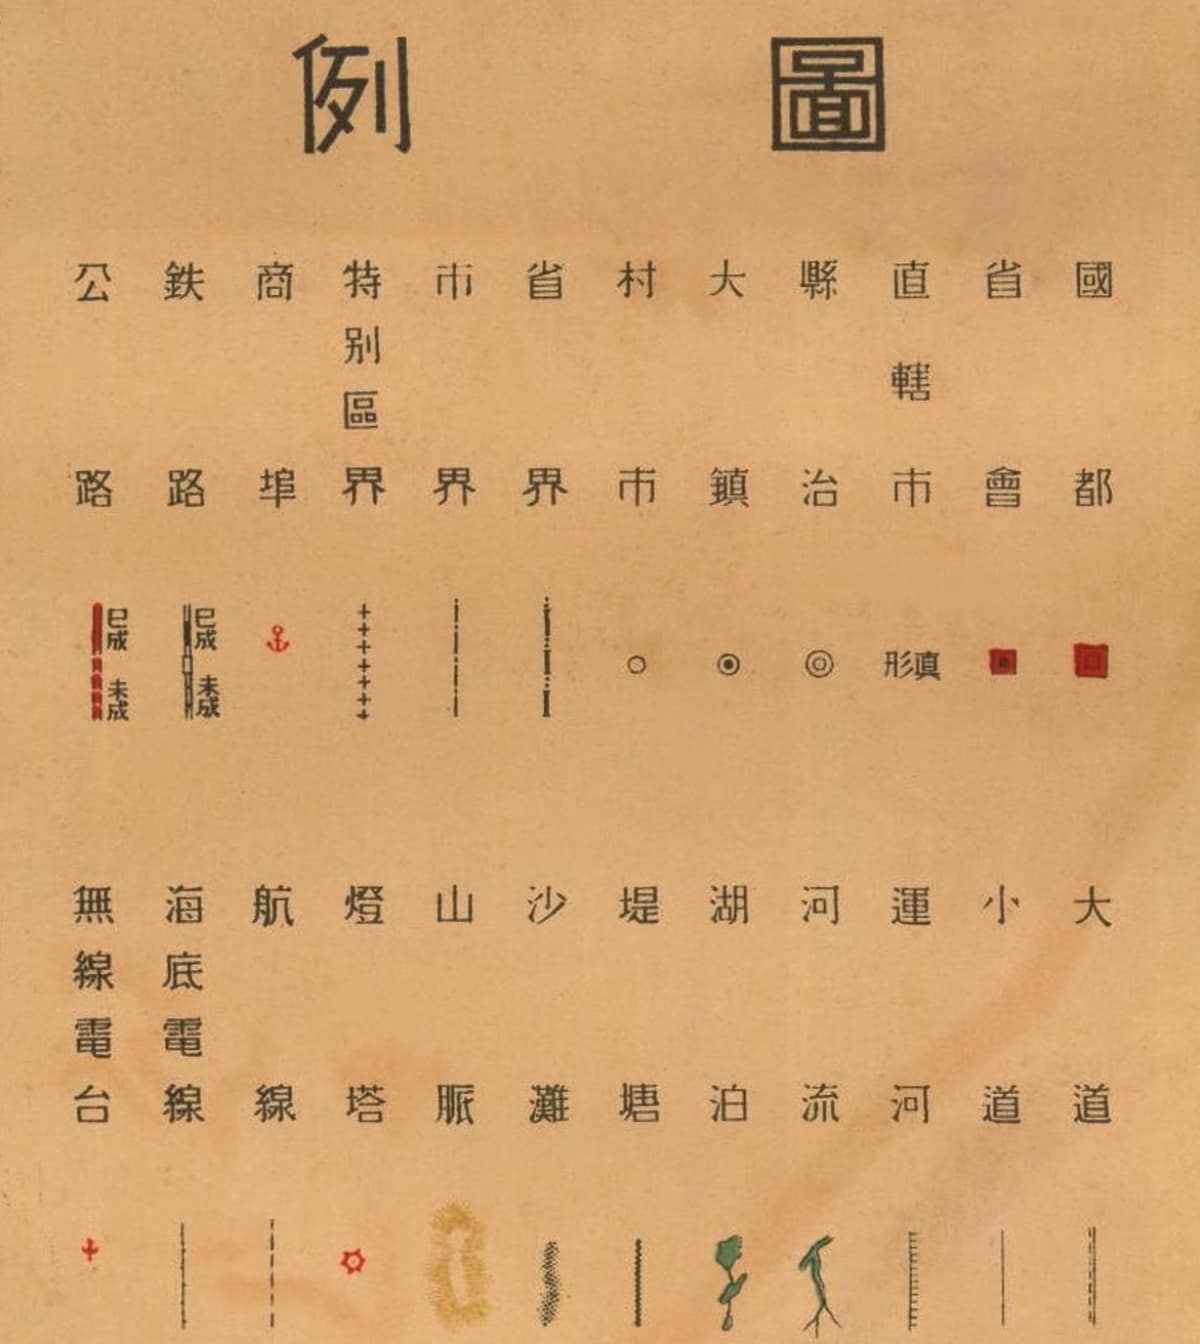 圖例
國都
省會
直轄市
真形
縣治
大鎮
村市
省界
市界
特別區界
商埠
鉄路
已成 未成
公路
已成 未成
大道
小道
運河
河流
湖泊
堤塘
沙灘
山脈
燈塔
航線
海底電線
無線電台